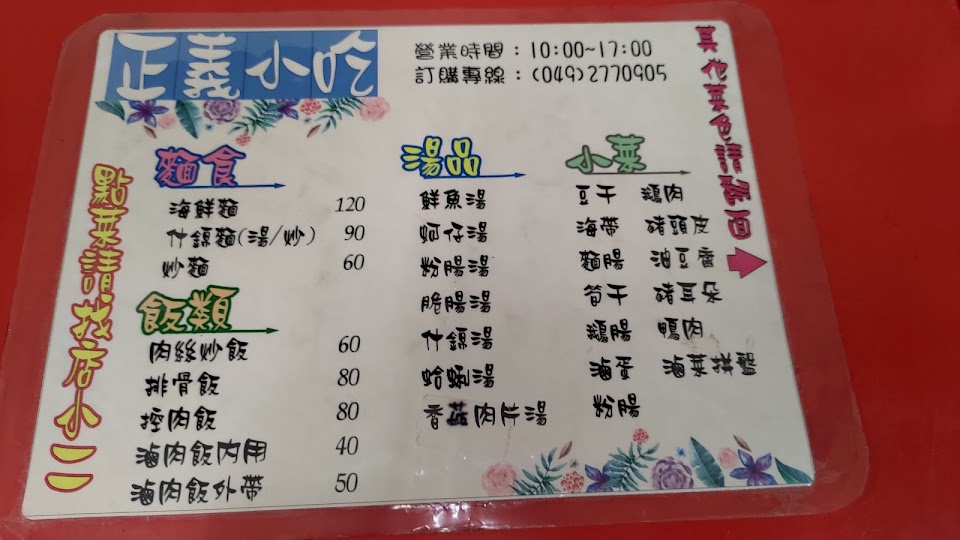 正義小吃
營業時間：10:00~17:00
訂購專線：(049)2770905
其他菜色請翻面
點菜請找店小二
麵食
海鮮麵 120
什錦麵(湯/炒) 90
炒麵 60
飯類
肉絲炒飯 60
排骨飯 80
控肉飯 80
滷肉飯內用 40
滷肉飯外帶 50
湯品
鮮魚湯
蚵仔湯
粉腸湯
脆腸湯
什錦湯
蛤蜊湯
香菇肉片湯
小菜
豆干 鵝肉
海帶 豬頭皮
麵腸 油豆腐
筍干 豬耳朵
鵝腸 鴨肉
滷蛋 滷菜拼盤
粉腸